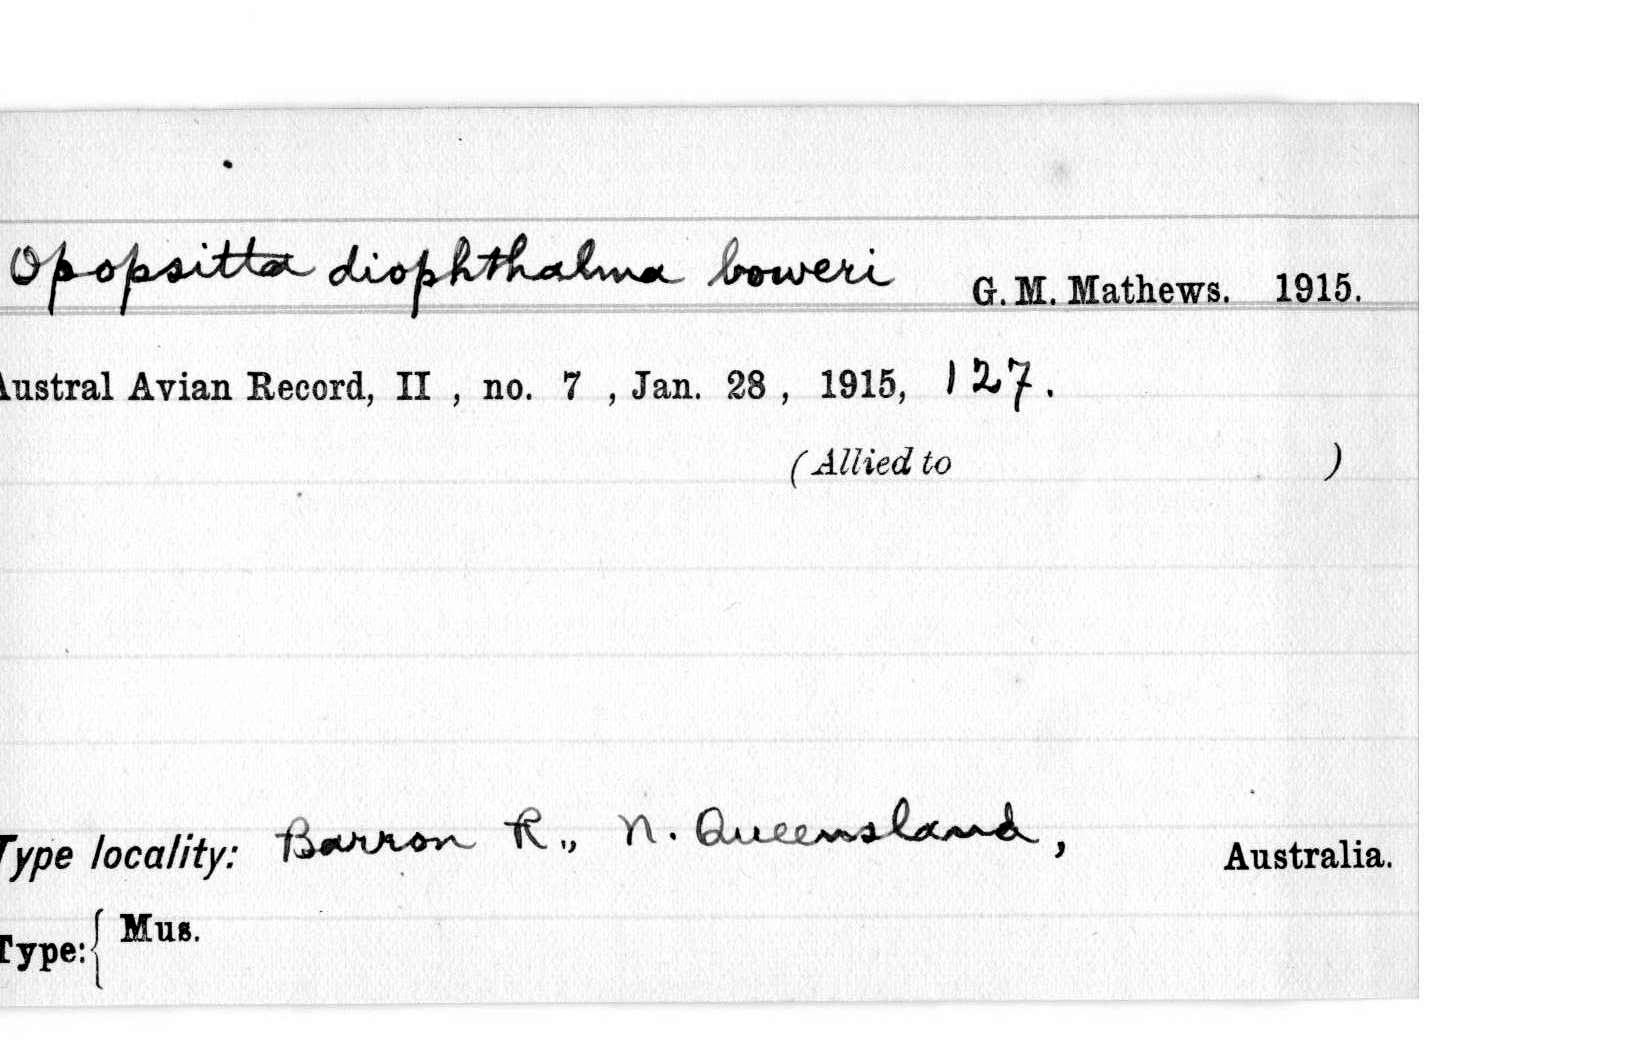 Opopsitta diophthalma boweri G. M. Mathews. 1915.
Austral Avian Record, II , no. 7 , Jan. 28 , 1915, 127.
(Allied to )
Type locality: Barron R., N. Queensland, Australia.
Type: { Mus.